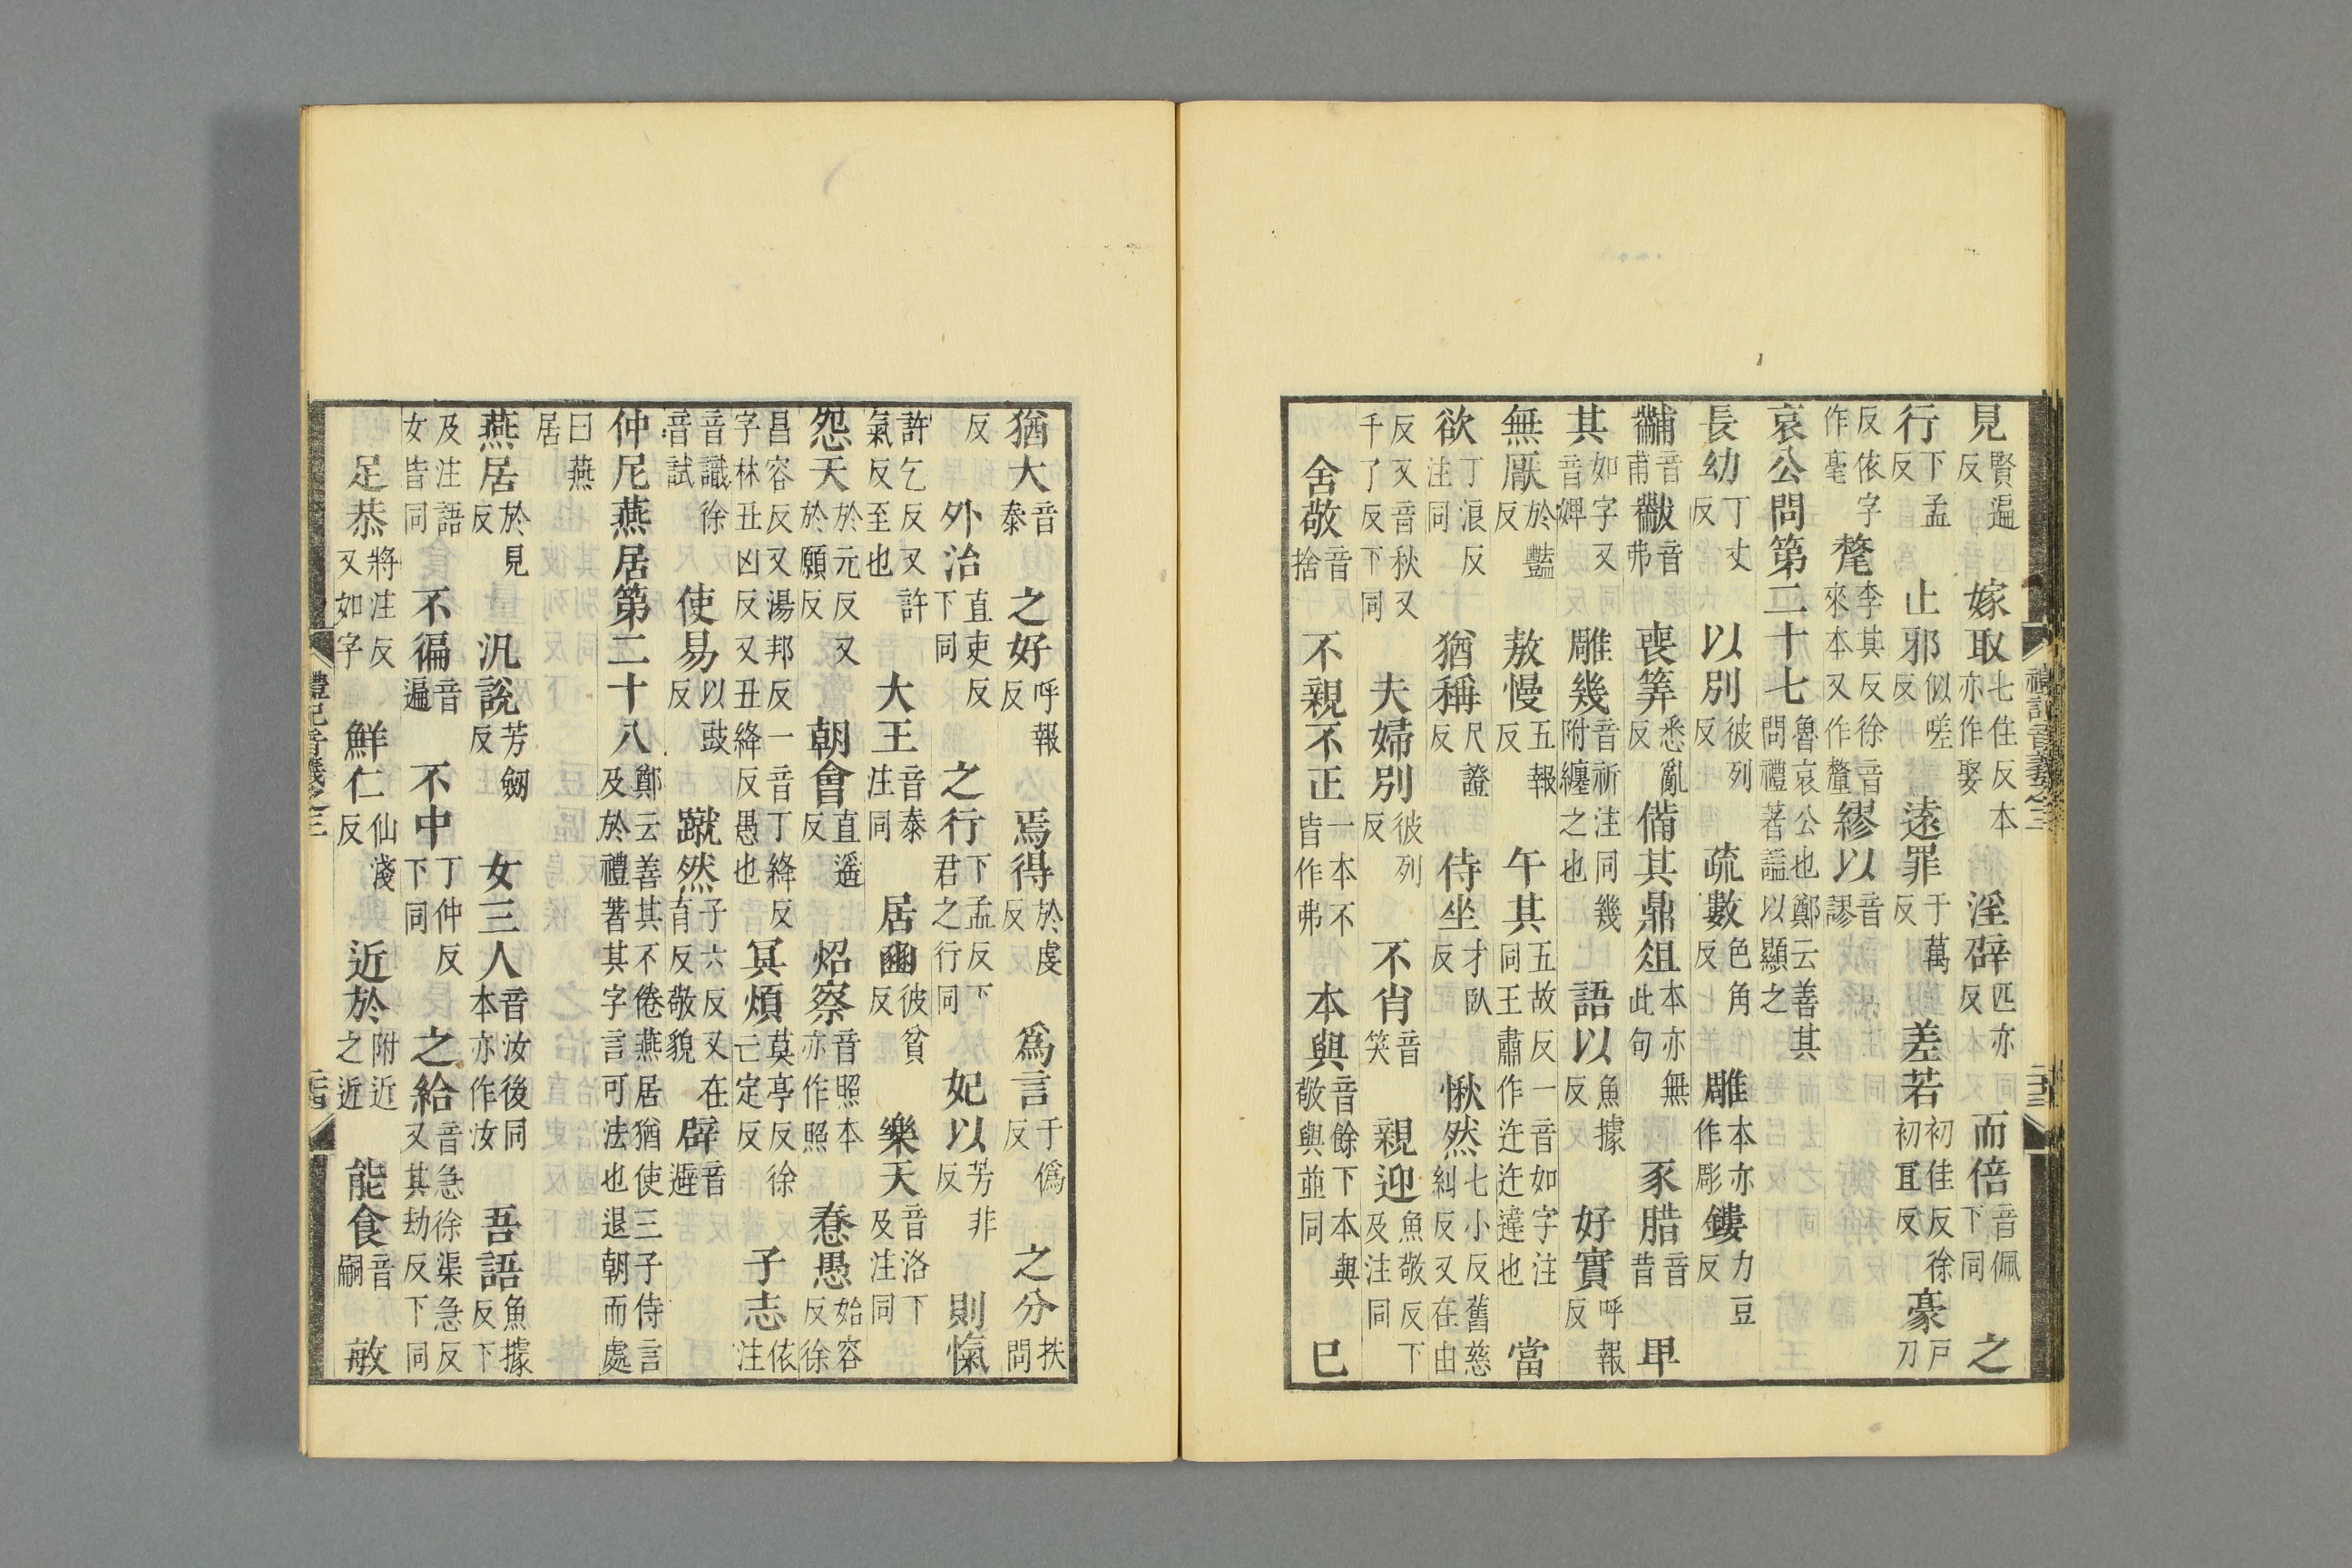 禮記音義之三
見賢遍反　嫁取七住反本亦作娶　淫辟匹亦反　而倍音佩下同　之
行下孟反　止邪似嗟反　遠罪于萬反　差若初佳反徐初宜反　豪戶刀
反依字作毫　氂李其反徐音來本又作釐　繆以音謬
哀公問第二十七魯哀公也鄭云善其問禮著謚以顯之
長幼丁丈反　以別彼列反　疏數色角反　雕本亦作彫　鏤力豆反
黼音甫　黻音弗　喪筭悉亂反　備其鼎俎本亦無此句　豕腊音昔　卑
其如字又音婢　雕幾音祈注同幾附纏之也　語以魚據反　好實呼報反
無厭於豔反　敖慢五報反　午其五故反一音如字注同王肅作迕迕違也　當
欲丁浪反注同　猶稱尺證反　侍坐才臥反　愀然七小反舊慈糾反又在由
反又音秋又千了反下同　夫婦別彼列反　不肖音笑　親迎魚敬反下及注同
舍敬音捨　不親不正一本不皆作弗　本與音餘下本與敬與並同　已
猶大音泰　之好呼報反　焉得於虔反　爲言于僞反　之分扶問
反　外治直吏反下同　之行下孟反下君之行同　妃以芳非反　則愾
許乞反又許氣反至也　大王音泰注同　居豳彼貧反　樂天音洛下及注同
怨天於元反又於願反　朝會直遥反　炤察音照本亦作照　惷愚始容反徐
昌容反又湯邦反一音丁絳反字林丑凶反又丑絳反愚也　冥煩莫亭反徐亡定反　子志依注
音識徐音試　使易以豉反　蹴然子六反又在育反敬貌　辟音避
仲尼燕居第二十八鄭云善其不倦燕居猶使三子侍言及於禮著其字言可法也退朝而處
曰燕居
燕居於見反　汎說芳劒反　女三人音汝後同本亦作汝　吾語魚據反下
及注語女皆同　不徧音遍　不中丁仲反下同　之給音急徐渠急反又其劫反下同
足恭將注反又如字　鮮仁仙淺反　近於附近之近　能食音嗣　敏
禮記音義之三